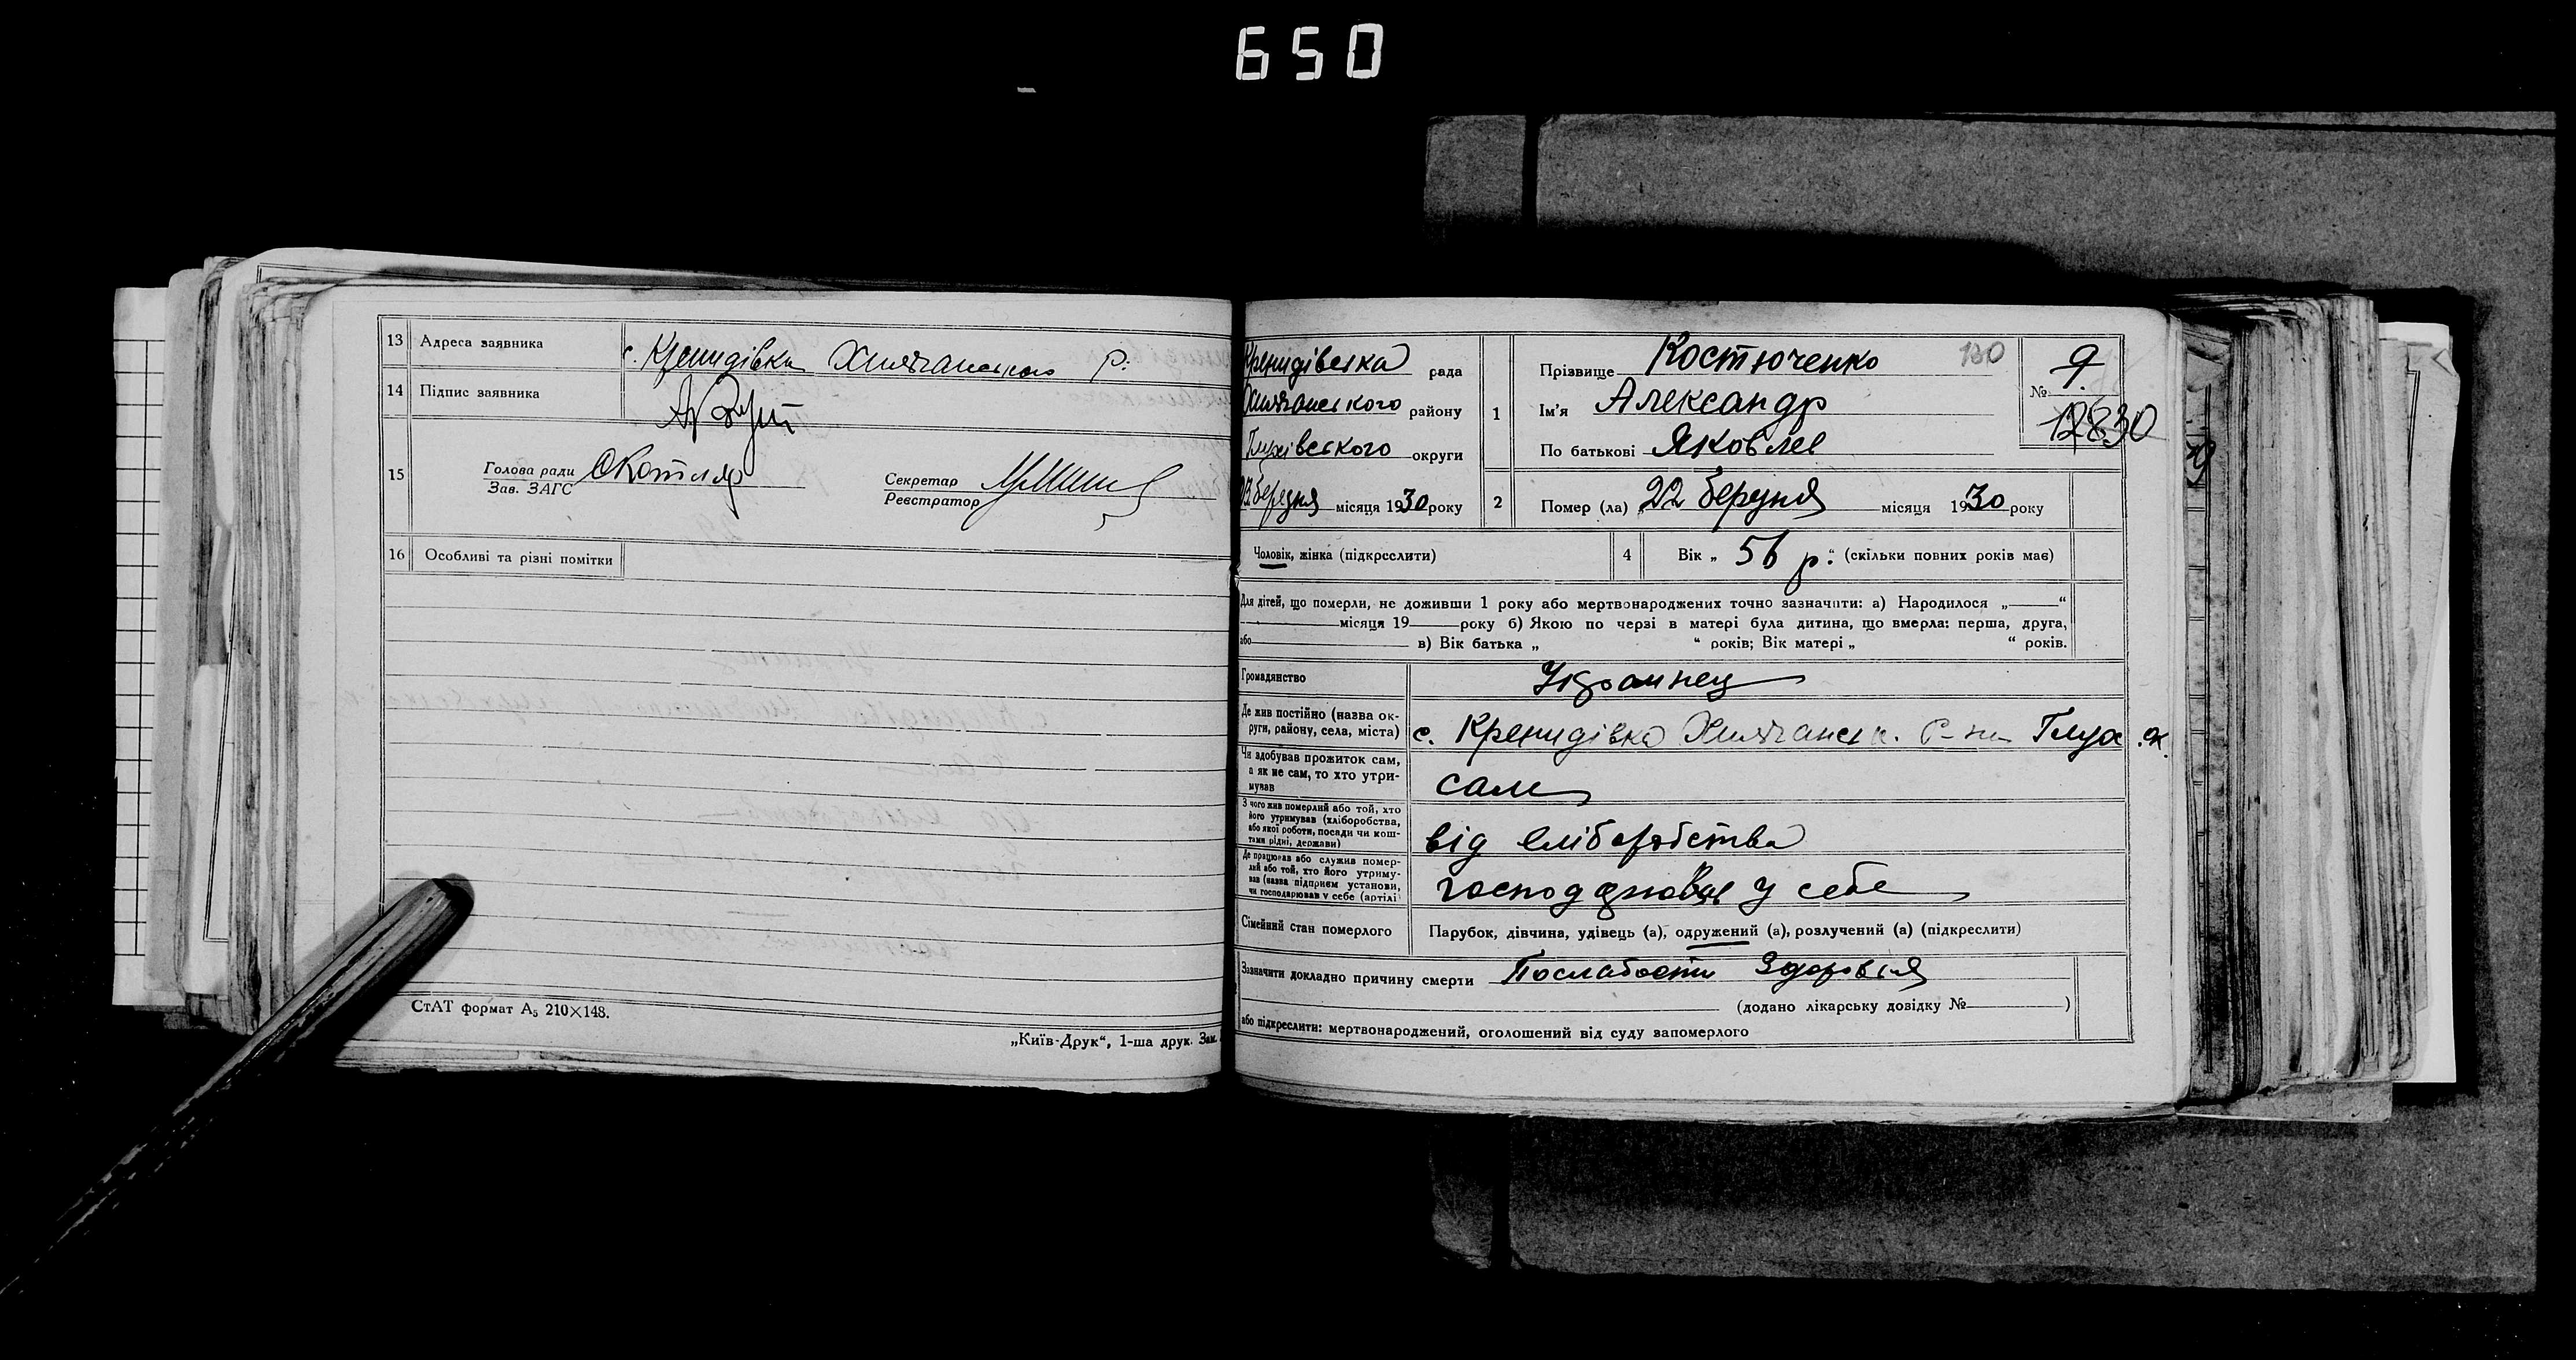 650
13 Адреса заявника с. Кренидівка Хильчанського р.
14 Підпис заявника
15 Голова ради
Зав. ЗАГС
Секретар
Реєстратор
16 Особливі та різні помітки
СтАТ формат А5 210×148.
„Київ-Друк“, 1-ша друк. Зам.
Кренидівська рада
Хильчанського району
Глухівського округи
23 березня місяця 1930 року
1 Прізвище Костюченко 130
Ім'я Александр
По батькові Яковлев
№ 9
12830
2 Помер (ла) 22 беруня місяця 1930 року
Чоловік, жінка (підкреслити)
4 Вік „ 56 р. “ (скільки повних років має)
Для дітей, що померли, не доживши 1 року або мертвонароджених точно зазначити: а) Народилося „ “
місяця 19 року б) Якою по черзі в матері була дитина, що вмерла: перша, друга,
або в) Вік батька „ “ років; Вік матері „ “ років.
Громадянство Украинец
Де жив постійно (назва ок-
руги, району, села, міста) с. Кренидівка Хильчанськ. р-на Глух. ок.
Чи здобував прожиток сам,
а як не сам, то хто утри-
мував сам
З чого жив померлий або той, хто
його утримував (хліборобства,
або якої роботи, посади чи кош-
тами рідні, держави) від хліборобства
Де працював або служив помер-
лий або той, хто його утриму-
вав (назва підприєм установи,
чи господарював у себе (артілі) господарював у себе
Сімейний стан померлого Парубок, дівчина, удівець (а), одружений (а), розлучений (а) (підкреслити)
Зазначити докладно причину смерти Послабости здоровія
(додано лікарську довідку № )
або підкреслити: мертвонароджений, оголошений від суду запомерлого